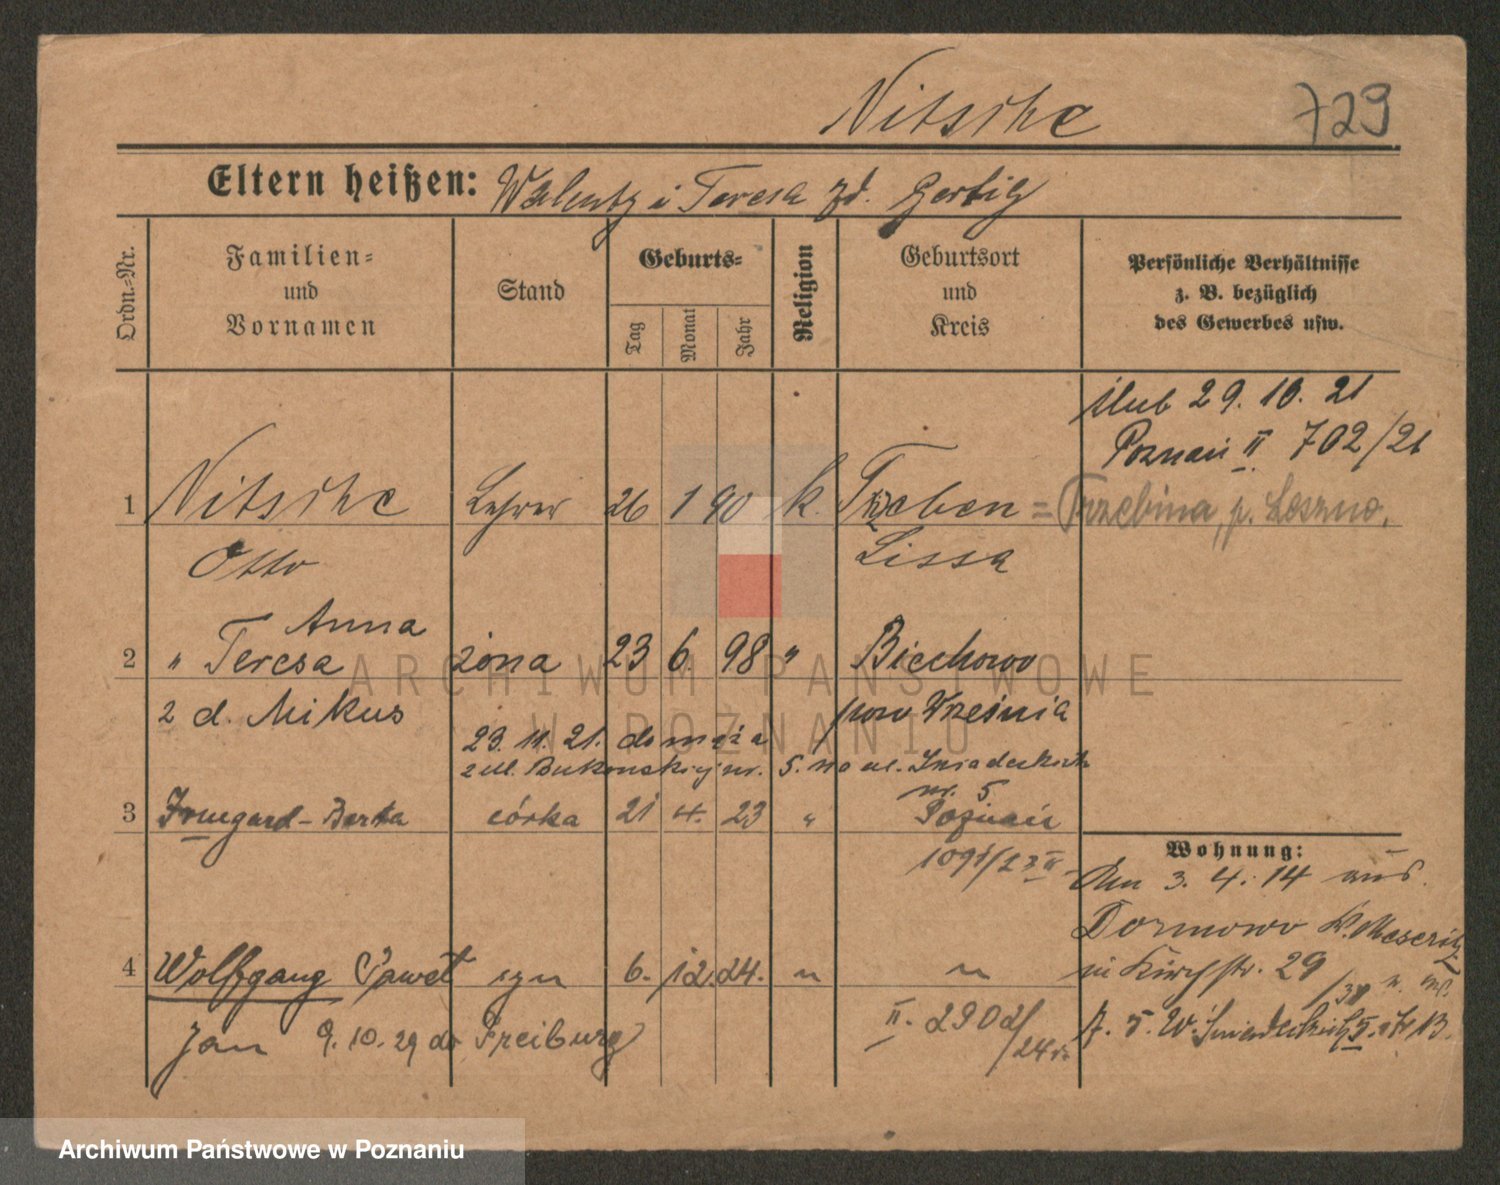 Nitsche 729
Eltern heißen: Walenty i Teresa zd. Gertig
Ordn.-Nr.
Familien-
und
Vornamen
Stand
Geburts-
Tag
Monat
Jahr
Religion
Geburtsort
und
Kreis
Persönliche Verhältnisse
z. B. bezüglich
des Gewerbes usw.
ślub 29. 10. 21
Poznań II 702/21
1 Nitsche Lehrer 26 1 90 k. Treben = Trzebina, p. Leszno.
Otto Lissa
Anna
2 " Teresa żona 23 6. 98 " Biechowo
z d. Mikus pow Września
23. 11. 21. do męża
z ul. Bukowskiej nr. 5. na ul. Śniadeckich
nr. 5
3 Irmgard-Berta córka 21 4. 23 " Poznań
1091/23 II
Wohnung:
Am 3. 4. 14 aus
Dormowo K. Meseritz
4 Wolfgang Paweł syn 6. 12. 24. " "
in Kirchstr. 29
II. 2902/24
Jan 9. 10. 29 do Freiburg
ARCHIWUM PAŃSTWOWE
W POZNANIU
Archiwum Państwowe w Poznaniu